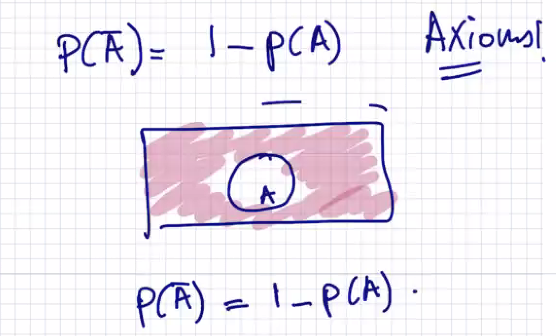 P(A̅) = 1 - P(A) Axioms!
A
P(A̅) = 1 - P(A).